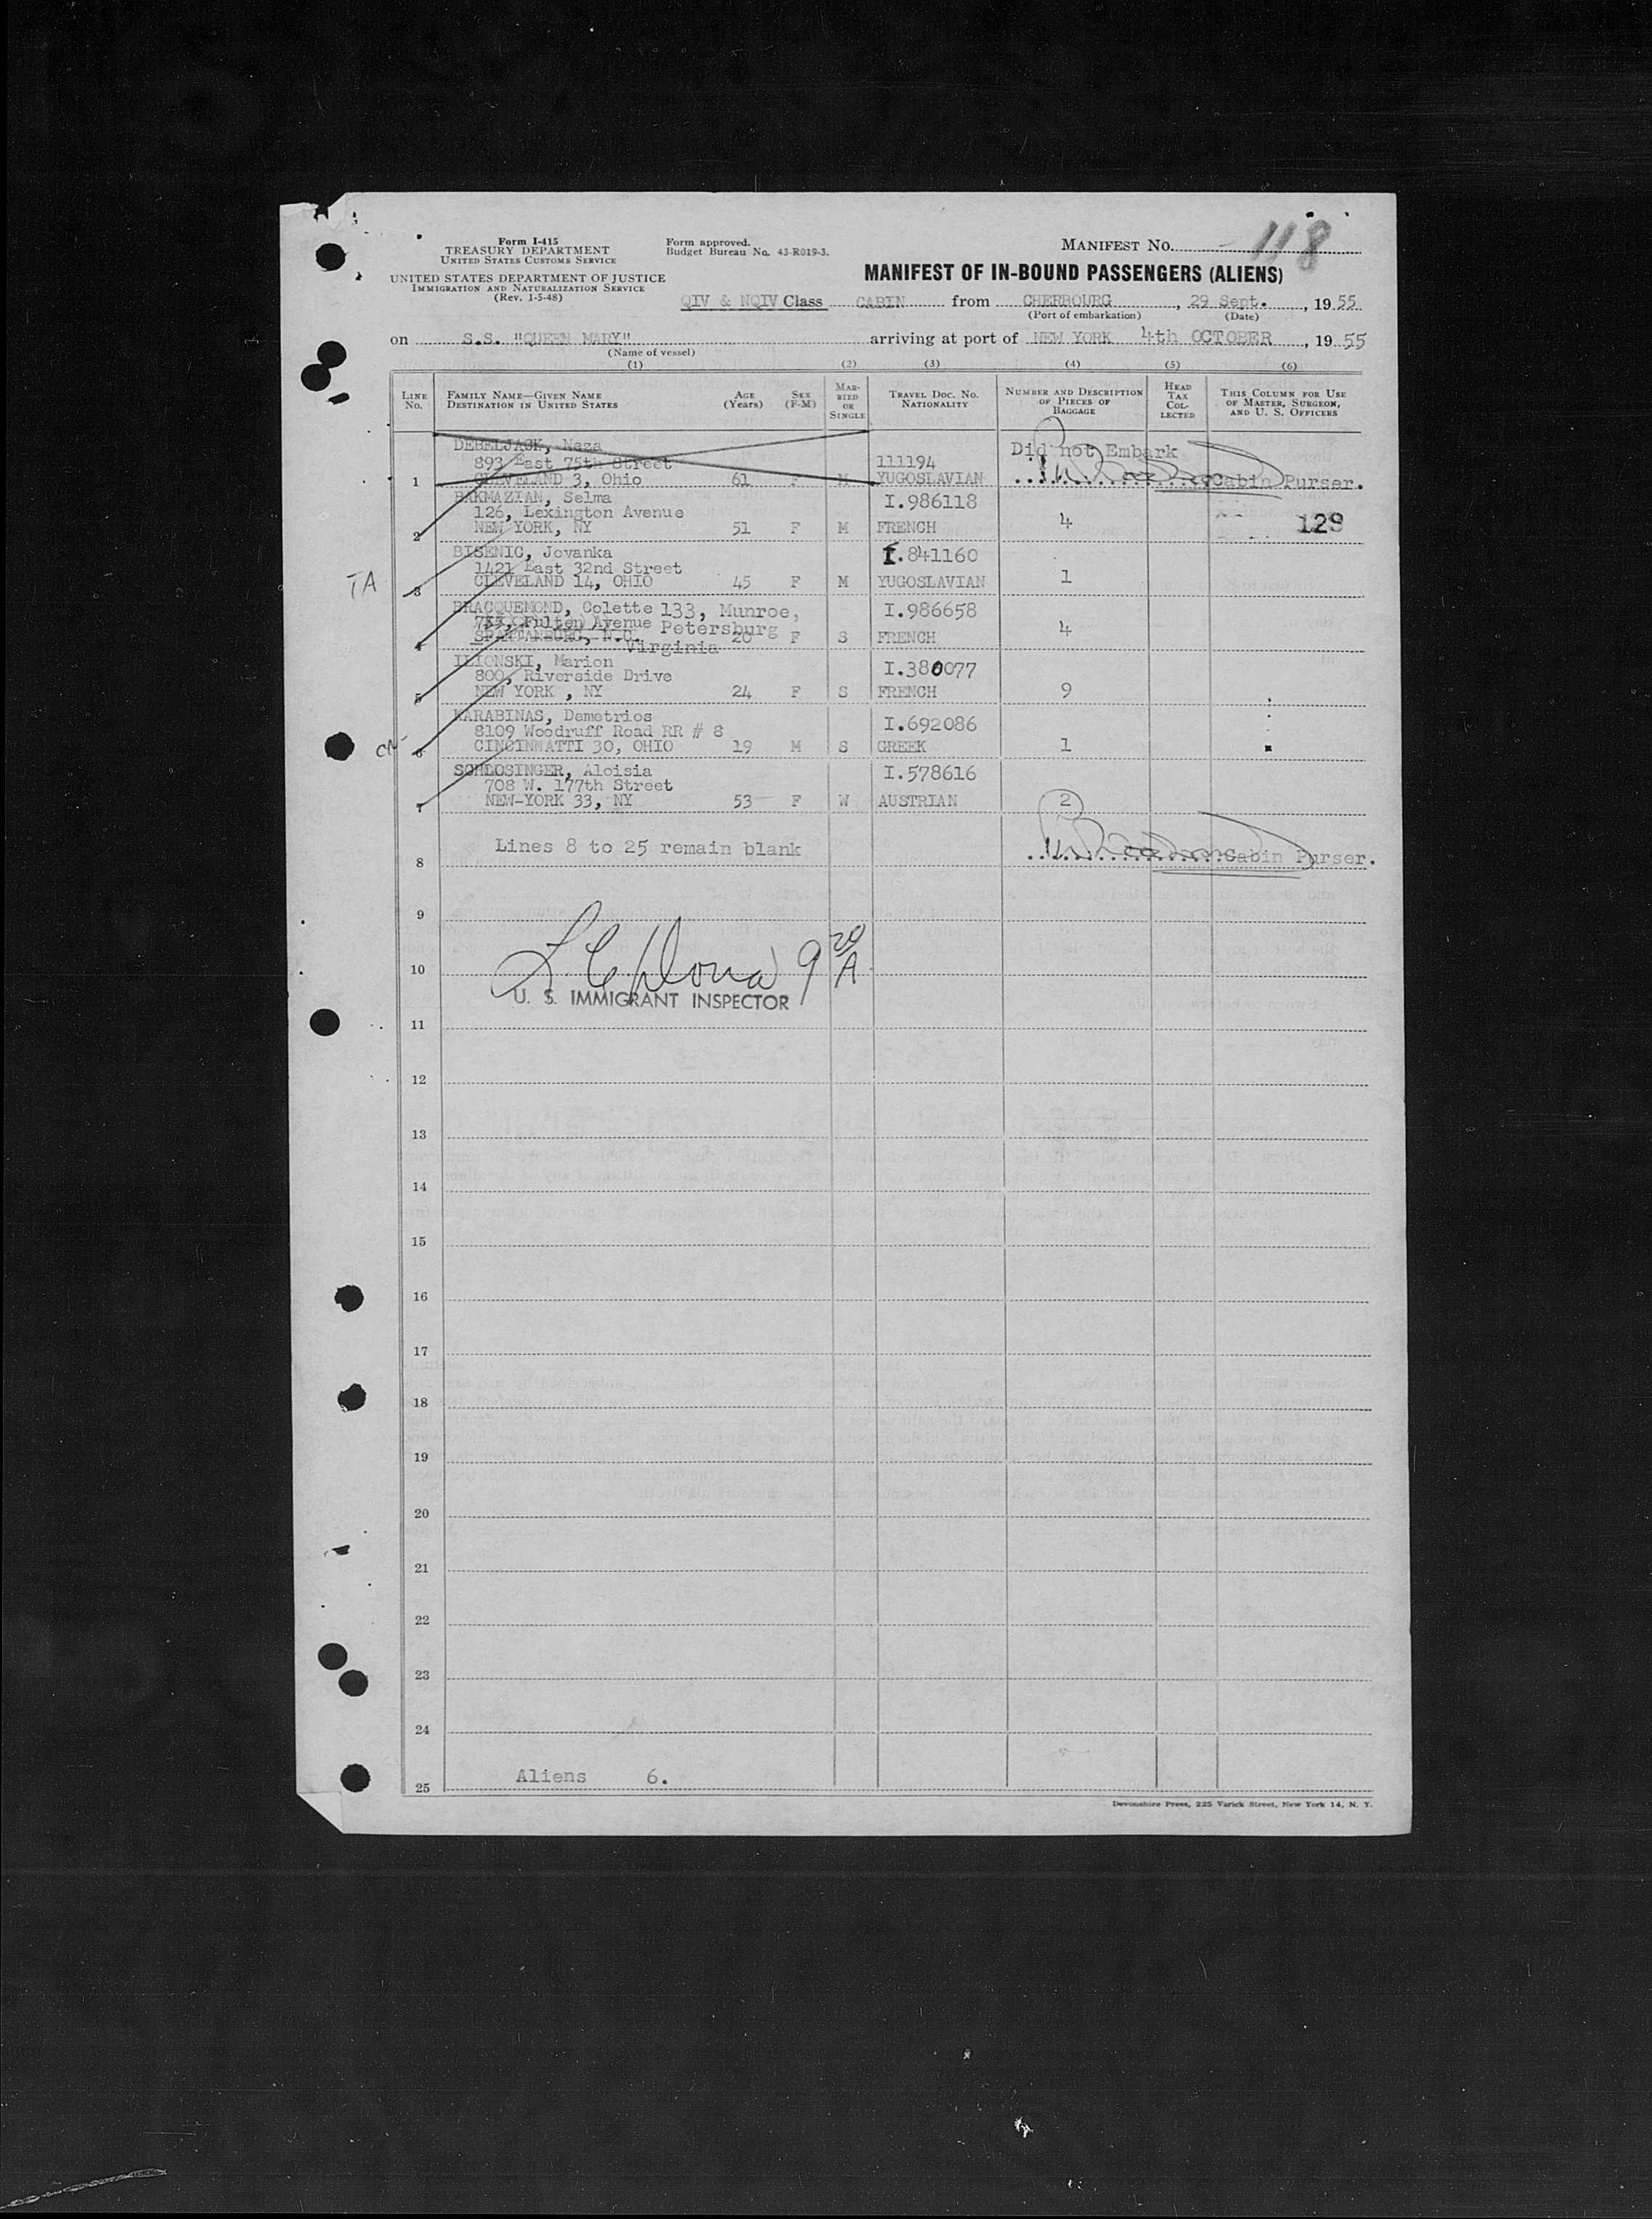 Form I-415
TREASURY DEPARTMENT
UNITED STATES CUSTOMS SERVICE
UNITED STATES DEPARTMENT OF JUSTICE
IMMIGRATION AND NATURALIZATION SERVICE
(Rev. 1-5-48)
Form approved.
Budget Bureau No. 43-R019-3.
MANIFEST No. 118
MANIFEST OF IN-BOUND PASSENGERS (ALIENS)
QIV & NQIV Class CABIN from CHERBOURG, 29 Sept., 1955
(Port of embarkation) (Date)
on S.S. "QUEEN MARY" arriving at port of NEW YORK 4th OCTOBER, 1955
(Name of vessel)
(1) (2) (3) (4) (5) (6)
LINE No.
FAMILY NAME—GIVEN NAME
DESTINATION IN UNITED STATES
AGE (Years)
SEX (F-M)
MARRIED OR SINGLE
TRAVEL DOC. NO.
NATIONALITY
NUMBER AND DESCRIPTION OF PIECES OF BAGGAGE
HEAD TAX COLLECTED
THIS COLUMN FOR USE OF MASTER, SURGEON, AND U. S. OFFICERS
DEBELJACK, Neza Did not Embark
893 East 75th Street 111194
1 CLEVELAND 3, Ohio 61 F M YUGOSLAVIAN Cabin Purser.
BAKMAZIAN, Selma I.986118
126, Lexington Avenue
2 NEW YORK, NY 51 F M FRENCH 4 129
BISENIC, Jovanka I.841160
1421 East 32nd Street
TA 3 CLEVELAND 14, OHIO 45 F M YUGOSLAVIAN 1
BRACQUEMOND, Colette 133, Munroe, I.986658
Fulten Avenue Petersburg
4 SPARTANBURG, N.C. 20 F S FRENCH 4
Virginia
ILIONSKI, Marion I.380077
800, Riverside Drive
5 NEW YORK , NY 24 F S FRENCH 9
KARABINAS, Demetrios I.692086
8109 Woodruff Road RR # 8
6 CINCINNATTI 30, OHIO 19 M S GREEK 1
SCHLOSINGER, Aloisia I.578616
708 W. 177th Street
7 NEW-YORK 33, NY 53 F W AUSTRIAN 2
Lines 8 to 25 remain blank
8 Cabin Purser.
9
10 9 20 A
U. S. IMMIGRANT INSPECTOR
11
12
13
14
15
16
17
18
19
20
21
22
23
24
25 Aliens 6.
Devonshire Press, 225 Varick Street, New York 14, N. Y.